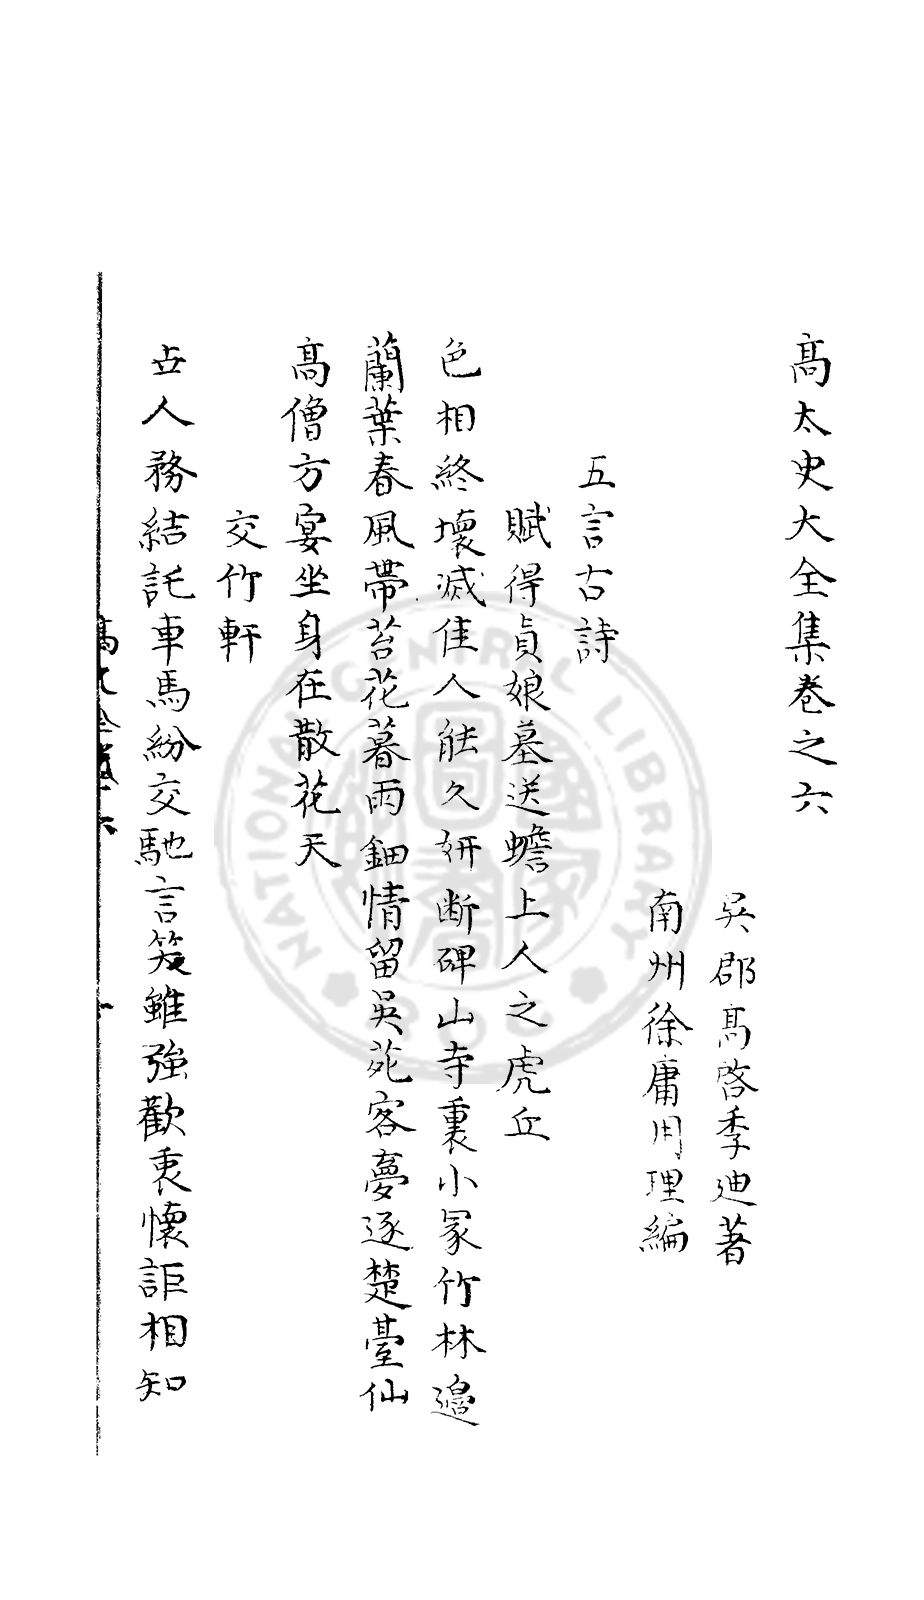 高太史大全集卷之六
吳郡高啓季迪著
南州徐庸用理編
五言古詩
賦得貞娘墓送蟾上人之虎丘
色相終壞滅佳人能久妍斷碑山寺裏小冢竹林邉
蘭葉春風帶苔花暮雨鈿情留吳苑客夢逐楚臺仙
高僧方宴坐身在散花天
交竹軒
世人務結託車馬紛交馳言笑雖強歡衷懷詎相知
NATIONAL CENTRAL LIBRARY